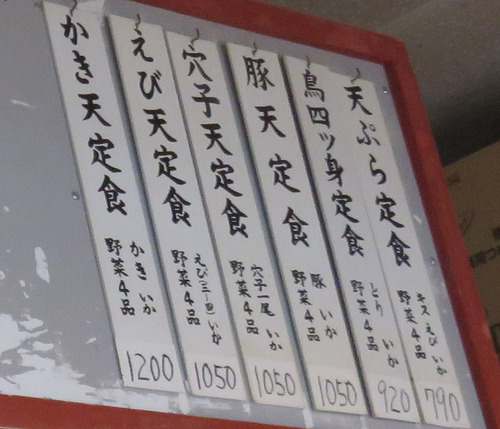 天ぷら定食
キス えび いか
野菜4品
790
鳥四ツ身定食
とり いか
野菜4品
920
豚天定食
豚 いか
野菜4品
1050
穴子天定食
穴子一尾 いか
野菜4品
1050
えび天定食
えび いか
野菜4品
1050
かき天定食
かき いか
野菜4品
1200